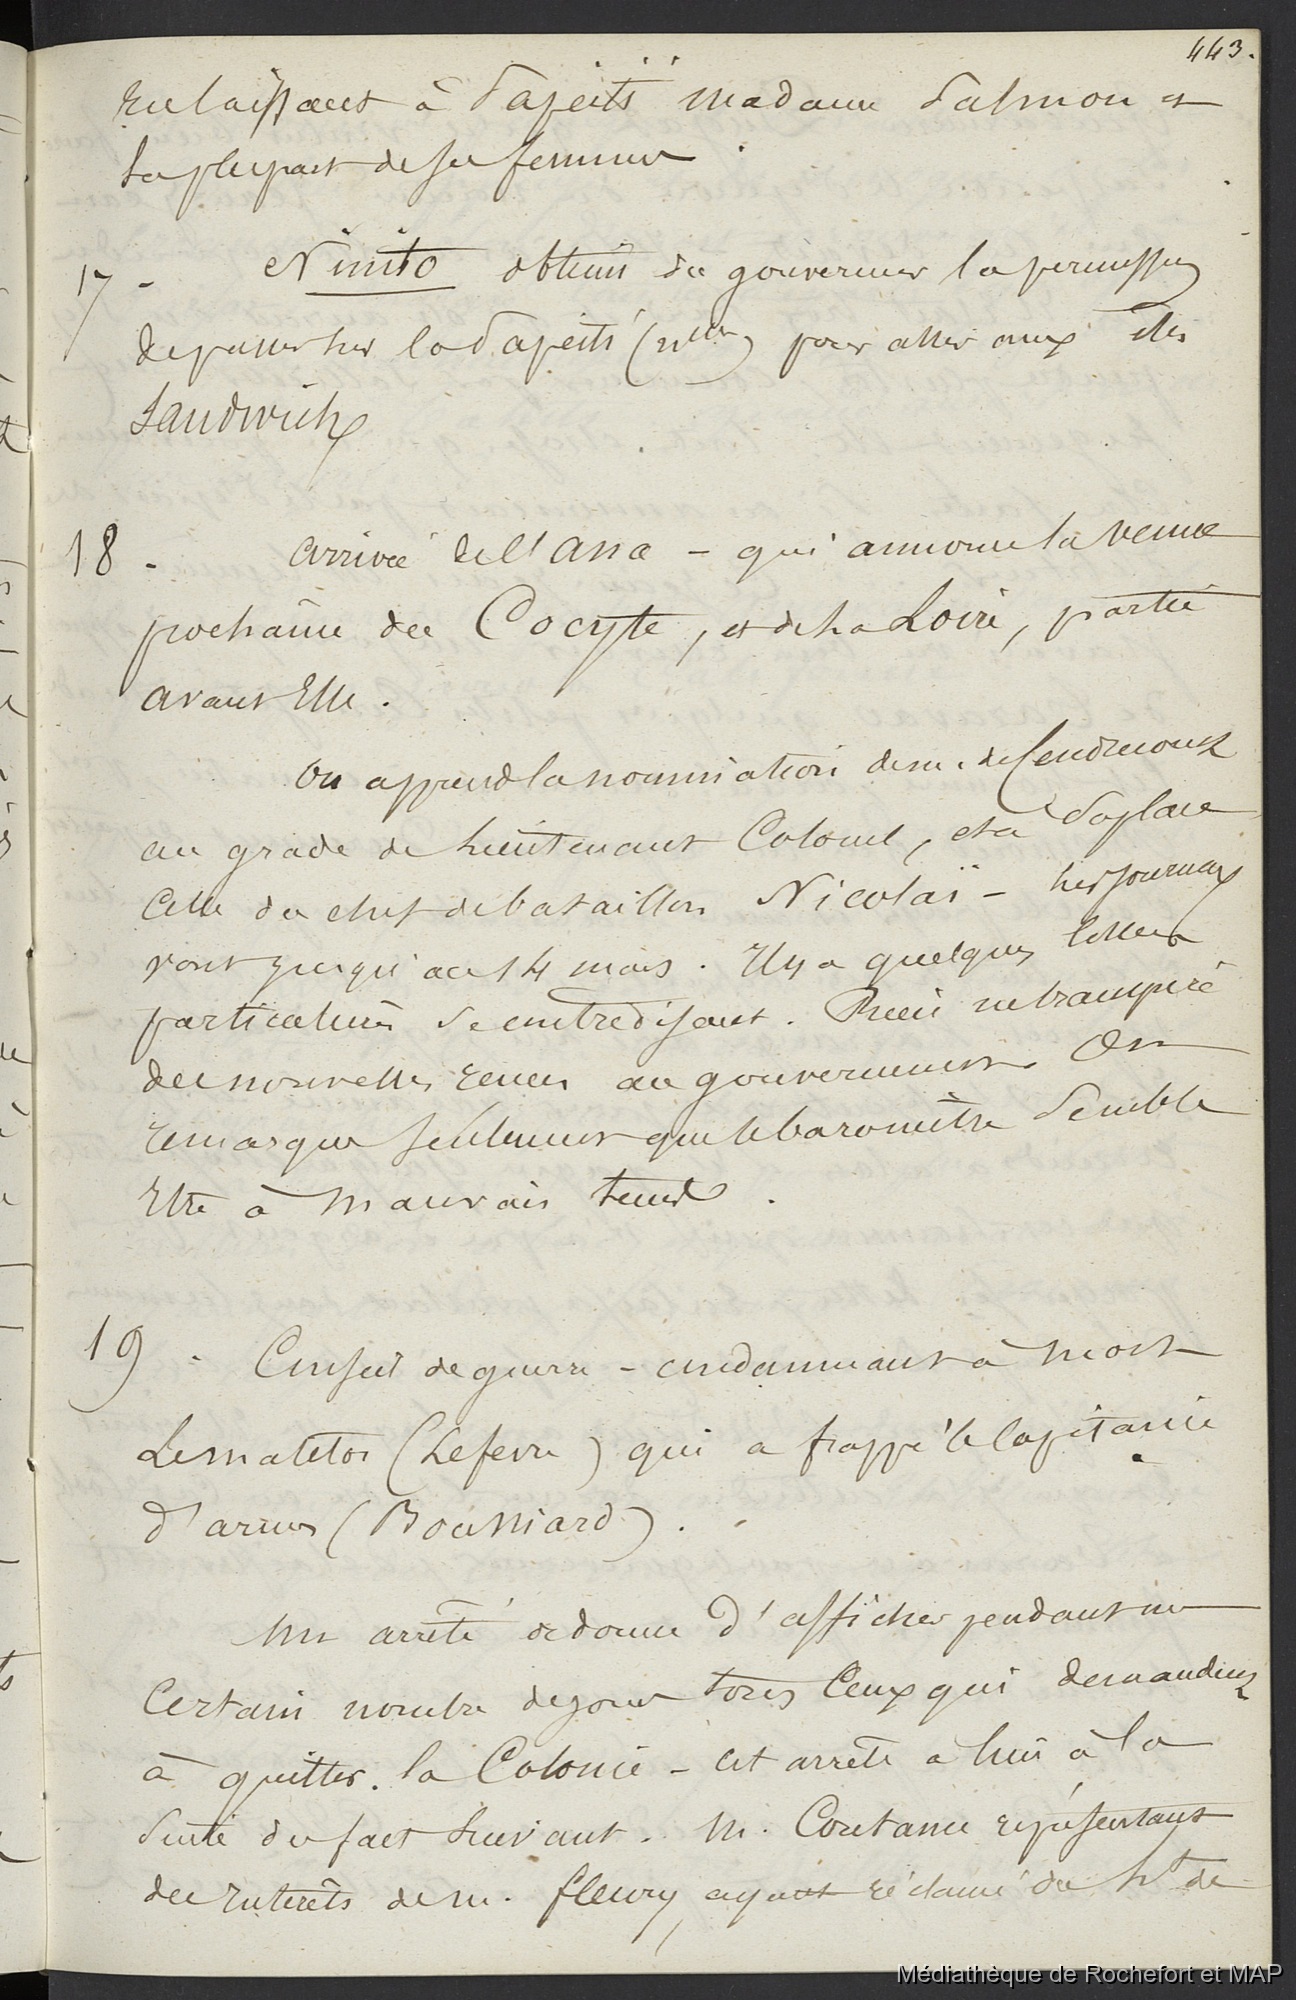 443.
en laissant à Papeiti madame Salmon et
la plupart de ses femmes.
17 - Ninito obtint du gouverneur la permission
de passer sur la Papeiti (nlle) pour aller aux iles
Sandwich
18 - arrivée de l'ana - qui annonce la venue
prochaine du Cocyte, et de la Loire, partie
avant Elle.
On apprend la nomination de m. de
au grade de Lieutenant Colonel, et à Sa place
Celle du chef de bataillon Nicolaï - les journaux
vont jusqu'au 14 mars. Il y a quelques lettres
particulières se contredisant. Rien ne transpire
des nouvelles reçues au gouvernement. On
remarque seulement que le baromètre Semble
Etre à mauvais temps.
19 - Conseil de guerre - condamnant à mort
Le matelot (Lefevre) qui a frappé le Capitaine
d'armes (Bouniard).
Un arrêté ordonne d'afficher pendant un
Certain nombre de jours tous Ceux qui demandent
à quitter la Colonie - Cet arrêté a lieu à la
Suite du fait Suivant. M. Coutance représentant
des Interêts de m. fleury, ayant réclamé du Lt de
Médiathèque de Rochefort et MAP